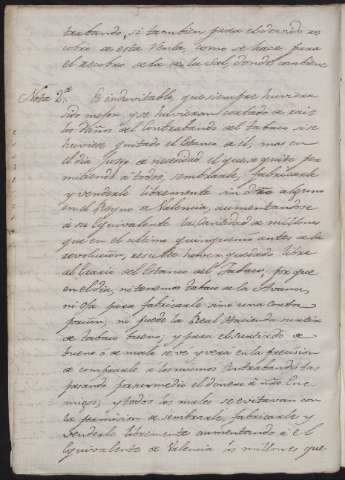 trabando, si tambien para el devido re
cobro de esta Renta, como se hace para
el recobro de la de la Sal, donde conviene
Nota 2.ª Es indubitable, que siempre huviera
sido mejor, y se huvieran cortado de raiz
los daños del Contrabando del tabaco si se
huviese quitado el Estanco de el, mas en
el dia juzgo de necesidad el que se quite per
mitiendo a todos, sembrarle, fabricarle
y venderle libremente sin alguno
en el Reyno de Valencia, aumentandose
à su Equivalente la cantidad de millones
que en el ultimo quinquenio antes de la
revolucion, resulte haver quedado libre
al Erario del Estanco del Tabaco, por que
en el dia, ni tenemos tabaco de la Havana,
ni para fabricarle sino una corta
porcion, ni puede la Real Hacienda surtir
de tabaco bueno, y para el surtido de
bueno ò de malo se ve y vera en la precision
de comprarle a los mismos Contrabandistas,
pasando por su medio el dinero à nros Ene
migos, y todos los males se evitavan con
la permision de sembrarle, fabricarle y
venderle libremente aumentando à el
Equivalente de Valencia los millones que